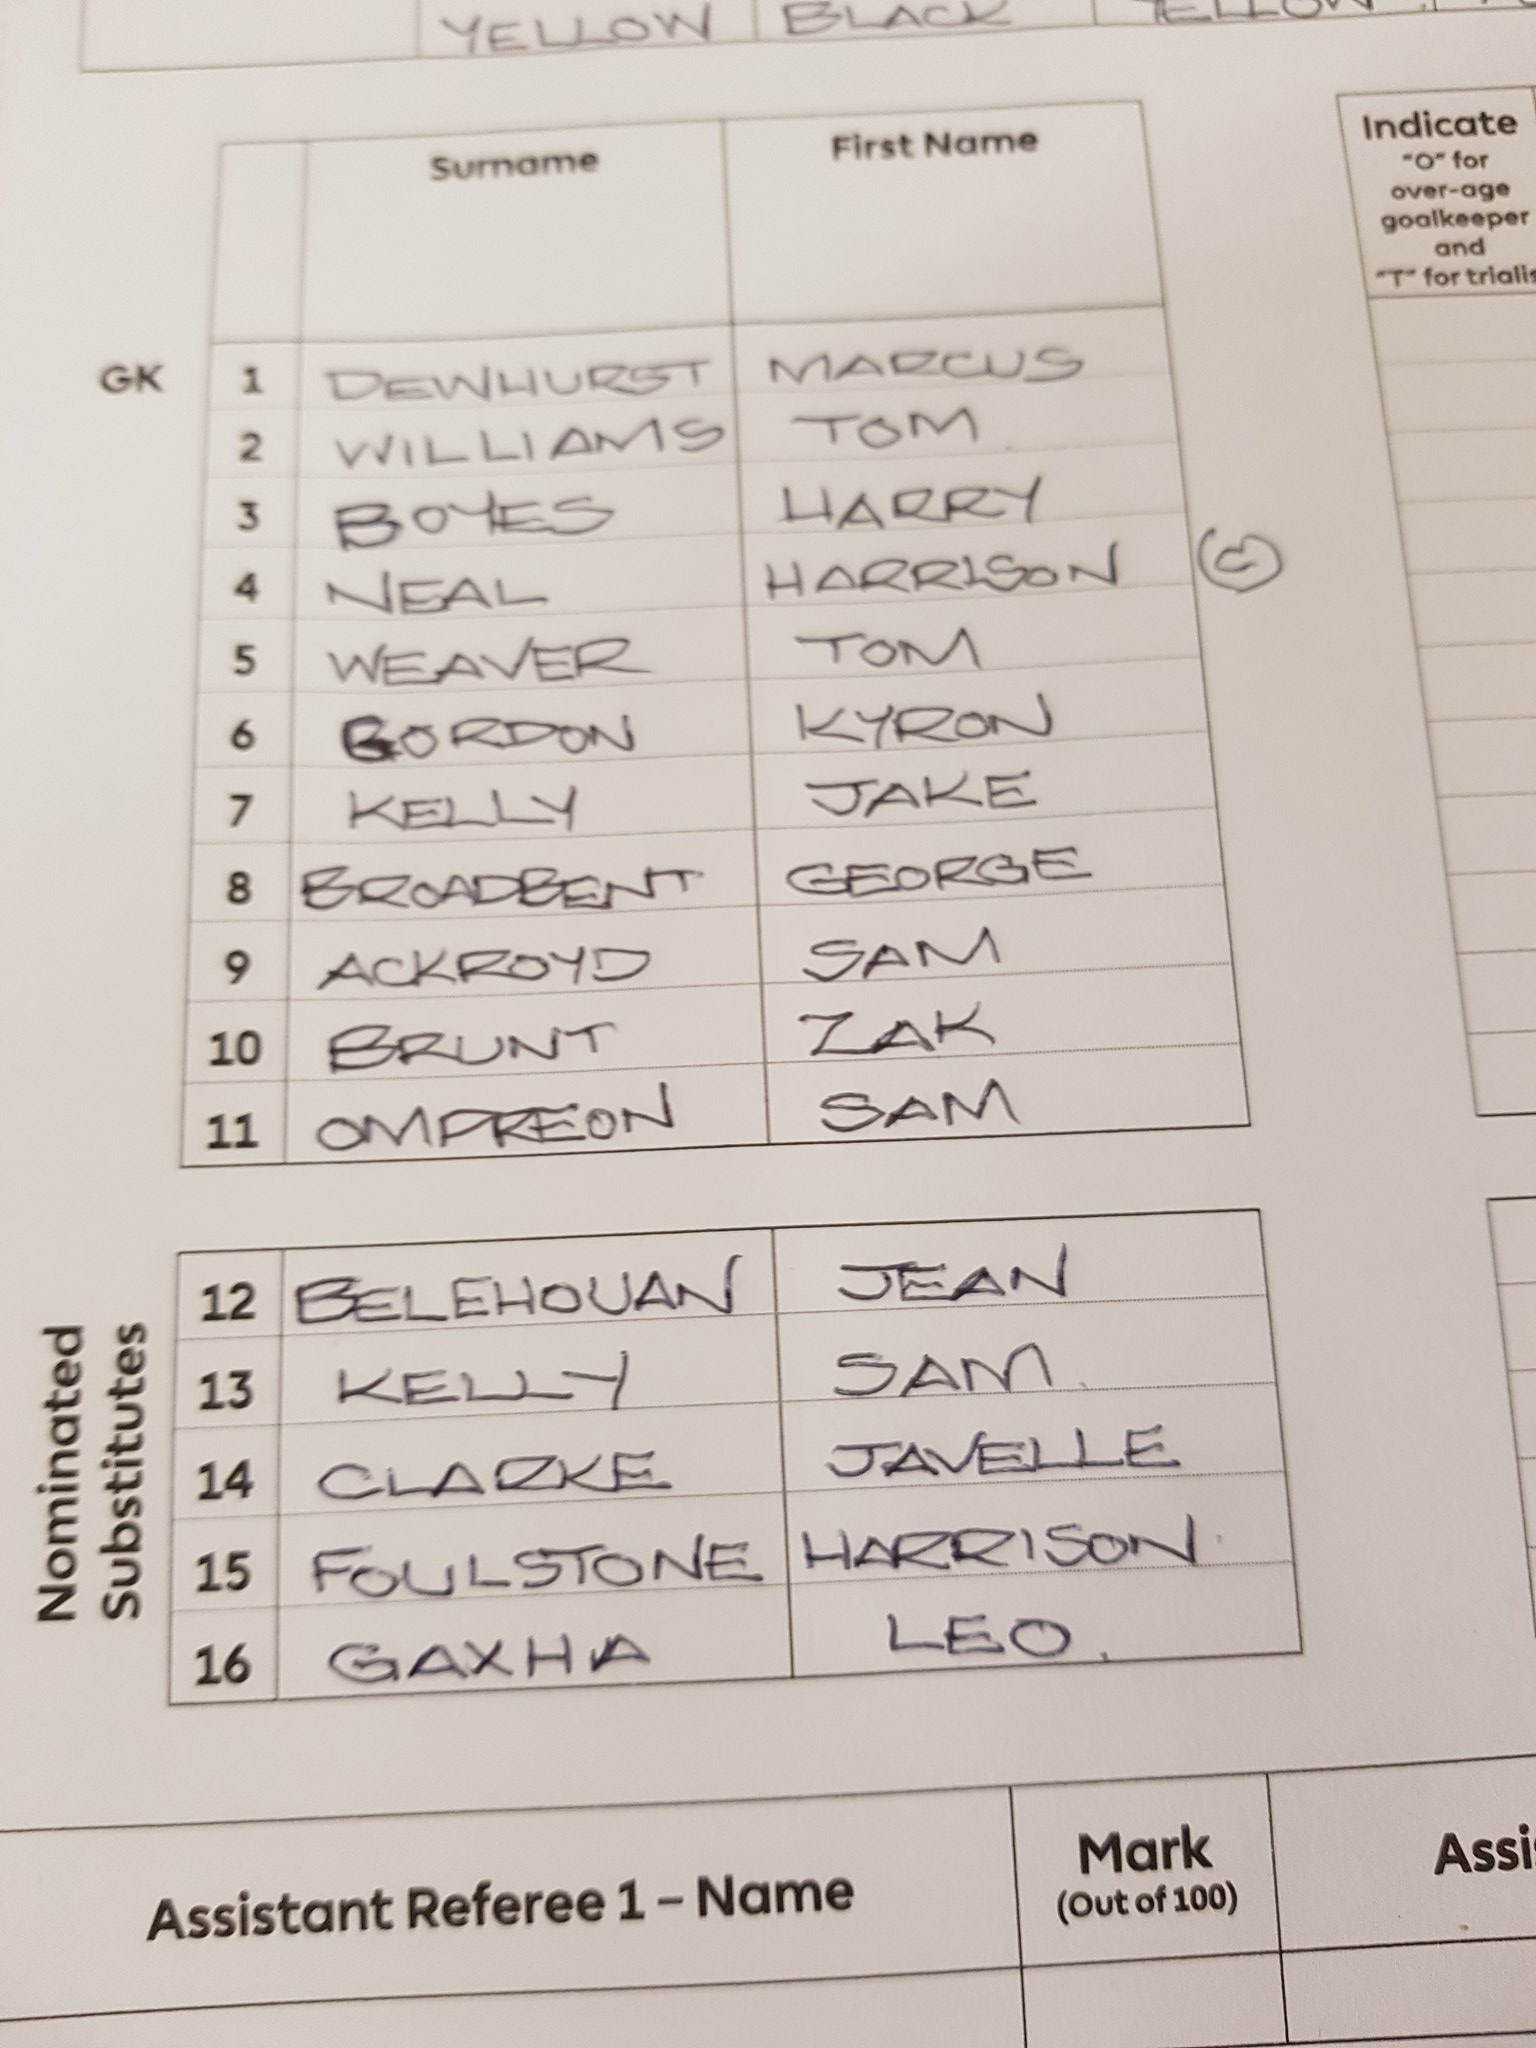 YELLOW BLACK YELLOW
Surname First Name
Indicate
"O" for
over-age
goalkeeper
and
"T" for
GK 1 DEWHURST MARCUS
2 WILLIAMS TOM
3 BOYES HARRY
4 NEAL HARRISON (C)
5 WEAVER TOM
6 GORDON KYRON
7 KELLY JAKE
8 BROADBENT GEORGE
9 ACKROYD SAM
10 BRUNT ZAK
11 OMPREON SAM
Nominated
Substitutes
12 BELEHOUAN JEAN
13 KELLY SAM
14 CLARKE JAVELLE
15 FOULSTONE HARRISON
16 GAXHA LEO
Assistant Referee 1 – Name Mark
(Out of 100)